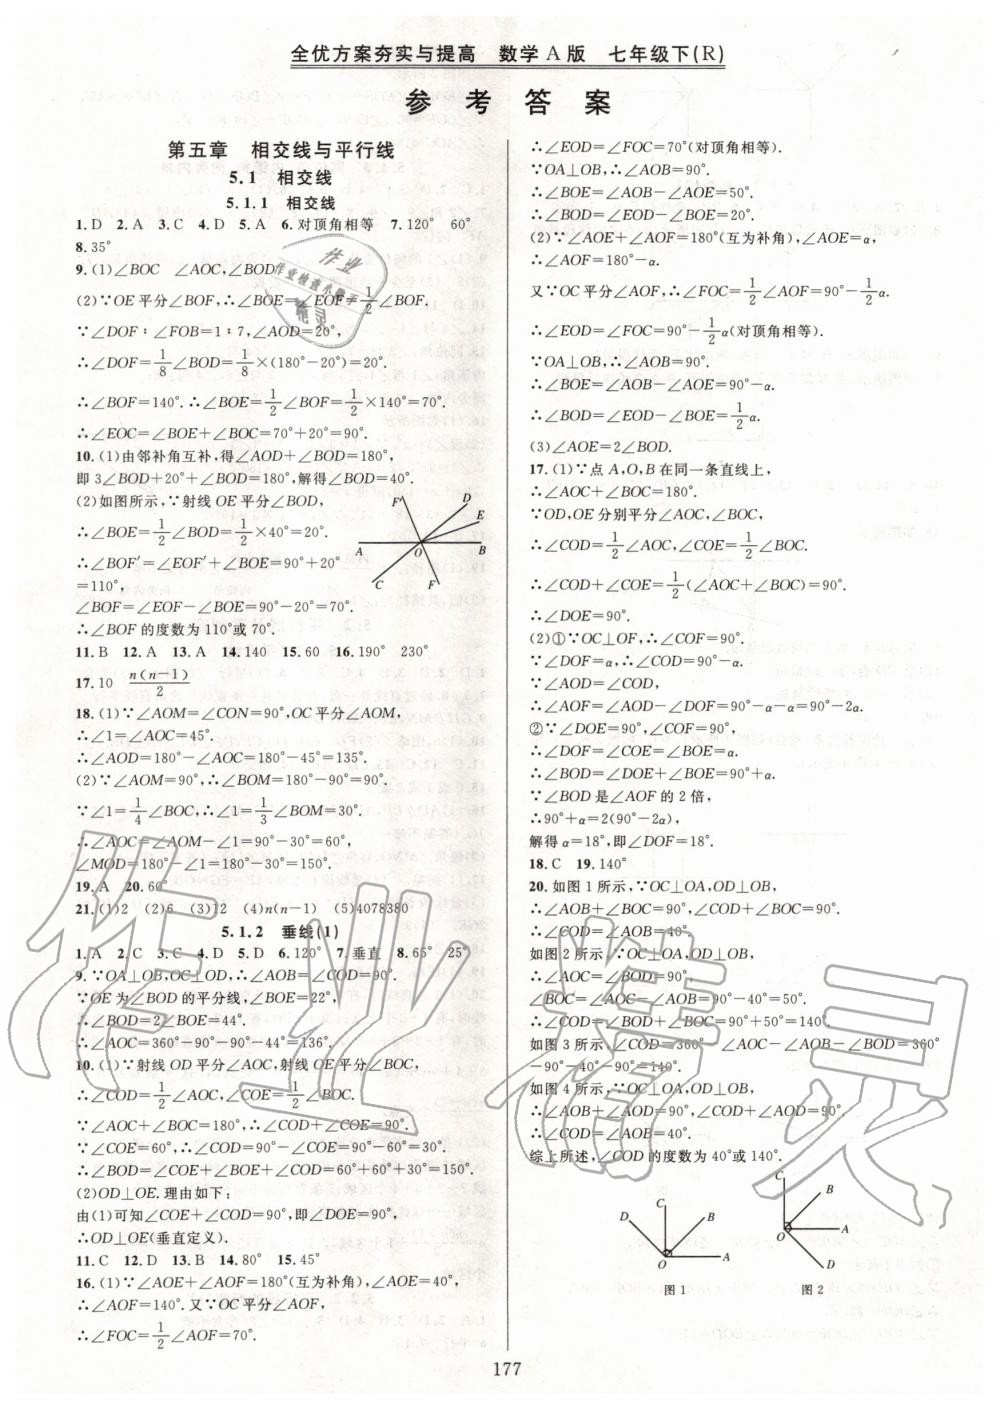 全优方案夯实与提高 数学 A 版 七年级下(R)
参考答案
第五章 相交线与平行线
5.1 相交线
5.1.1 相交线
1.D 2.A 3.C 4.D 5.A 6.对顶角相等 7.120° 60°
8.35°
9.(1)∠BOC ∠AOC,∠BOD
(2)∵OE平分∠BOF,∴∠BOE=∠EOF=1/2∠BOF.
∵∠DOF∶∠FOB=1∶7,∠AOD=20°,
∴∠DOF=1/8∠BOD=1/8×(180°-20°)=20°.
∴∠BOF=140°.∴∠BOE=1/2∠BOF=1/2×140°=70°.
∴∠EOC=∠BOE+∠BOC=70°+20°=90°.
10.(1)由邻补角互补,得∠AOD+∠BOD=180°,
即 3∠BOD+20°+∠BOD=180°,解得∠BOD=40°.
(2)如图所示,∵射线OE平分∠BOD,
∴∠BOE=1/2∠BOD=1/2×40°=20°.
∴∠BOF′=∠EOF′+∠BOE=90°+20°
=110°,
∠BOF=∠EOF-∠BOE=90°-20°=70°.
∴∠BOF的度数为110°或70°.
F′ D E A O B C F
11.B 12.A 13.A 14.140 15.60 16.190° 230°
17.10 n(n-1)/2
18.(1)∵∠AOM=∠CON=90°,OC平分∠AOM,
∴∠1=∠AOC=45°.
∴∠AOD=180°-∠AOC=180°-45°=135°.
(2)∵∠AOM=90°,∴∠BOM=180°-90°=90°.
∵∠1=1/4∠BOC,∴∠1=1/3∠BOM=30°.
∴∠AOC=∠AOM-∠1=90°-30°=60°,
∠MOD=180°-∠1=180°-30°=150°.
19.A 20.60°
21.(1)2 (2)6 (3)12 (4)n(n-1) (5)4078380
5.1.2 垂线(1)
1.A 2.C 3.C 4.D 5.D 6.120° 7.垂直 8.65° 25°
9.∵OA⊥OB,OC⊥OD,∴∠AOB=∠COD=90°.
∵OE为∠BOD的平分线,∠BOE=22°,
∴∠BOD=2∠BOE=44°.
∴∠AOC=360°-90°-90°-44°=136°.
10.(1)∵射线OD平分∠AOC,射线OE平分∠BOC,
∴∠COD=1/2∠AOC,∠COE=1/2∠BOC.
∵∠AOC+∠BOC=180°,∴∠COD+∠COE=90°.
∵∠COE=60°,∴∠COD=90°-∠COE=90°-60°=30°.
∴∠BOD=∠COE+∠BOE+∠COD=60°+60°+30°=150°.
(2)OD⊥OE.理由如下:
由(1)可知∠COE+∠COD=90°,即∠DOE=90°,
∴OD⊥OE(垂直定义).
11.C 12.D 13.B 14.80° 15.45°
16.(1)∵∠AOE+∠AOF=180°(互为补角),∠AOE=40°,
∴∠AOF=140°.又∵OC平分∠AOF,
∴∠FOC=1/2∠AOF=70°.
∴∠EOD=∠FOC=70°(对顶角相等).
∵OA⊥OB,∴∠AOB=90°.
∴∠BOE=∠AOB-∠AOE=50°.
∴∠BOD=∠EOD-∠BOE=20°.
(2)∵∠AOE+∠AOF=180°(互为补角),∠AOE=α,
∴∠AOF=180°-α.
又∵OC平分∠AOF,∴∠FOC=1/2∠AOF=90°-1/2α.
∴∠EOD=∠FOC=90°-1/2α(对顶角相等).
∵OA⊥OB,∴∠AOB=90°.
∴∠BOE=∠AOB-∠AOE=90°-α.
∴∠BOD=∠EOD-∠BOE=1/2α.
(3)∠AOE=2∠BOD.
17.(1)∵点A,O,B在同一条直线上,
∴∠AOC+∠BOC=180°.
∵OD,OE分别平分∠AOC,∠BOC,
∴∠COD=1/2∠AOC,∠COE=1/2∠BOC.
∴∠COD+∠COE=1/2(∠AOC+∠BOC)=90°.
∴∠DOE=90°.
(2)①∵OC⊥OF,∴∠COF=90°.
∵∠DOF=α,∴∠COD=90°-α.
∵∠AOD=∠COD,
∴∠AOF=∠AOD-∠DOF=90°-α-α=90°-2α.
②∵∠DOE=90°,∠COF=90°.
∴∠DOF=∠COE=∠BOE=α.
∴∠BOD=∠DOE+∠BOE=90°+α.
∵∠BOD是∠AOF的2倍,
∴90°+α=2(90°-2α),
解得α=18°,即∠DOF=18°.
18.C 19.140°
20.如图1所示,∵OC⊥OA,OD⊥OB,
∴∠AOB+∠BOC=90°,∠COD+∠BOC=90°.
∴∠COD=∠AOB=40°.
如图2所示,∵OC⊥OA,OD⊥OB,
∴∠AOC=∠BOD=90°.
∠BOC=∠AOC-∠AOB=90°-40°=50°.
∴∠COD=∠BOD+∠BOC=90°+50°=140°.
如图3所示,∠COD=360°-∠AOC-∠AOB-∠BOD=360°
-90°-40°-90°=140°.
如图4所示,∵OC⊥OA,OD⊥OB,
∴∠AOB+∠AOD=90°,∠COD+∠AOD=90°.
∴∠COD=∠AOB=40°.
综上所述,∠COD的度数为40°或140°.
C D B O A
图1
C B O A D
图2
177
作业
作业检查小助手
精灵
作业精灵